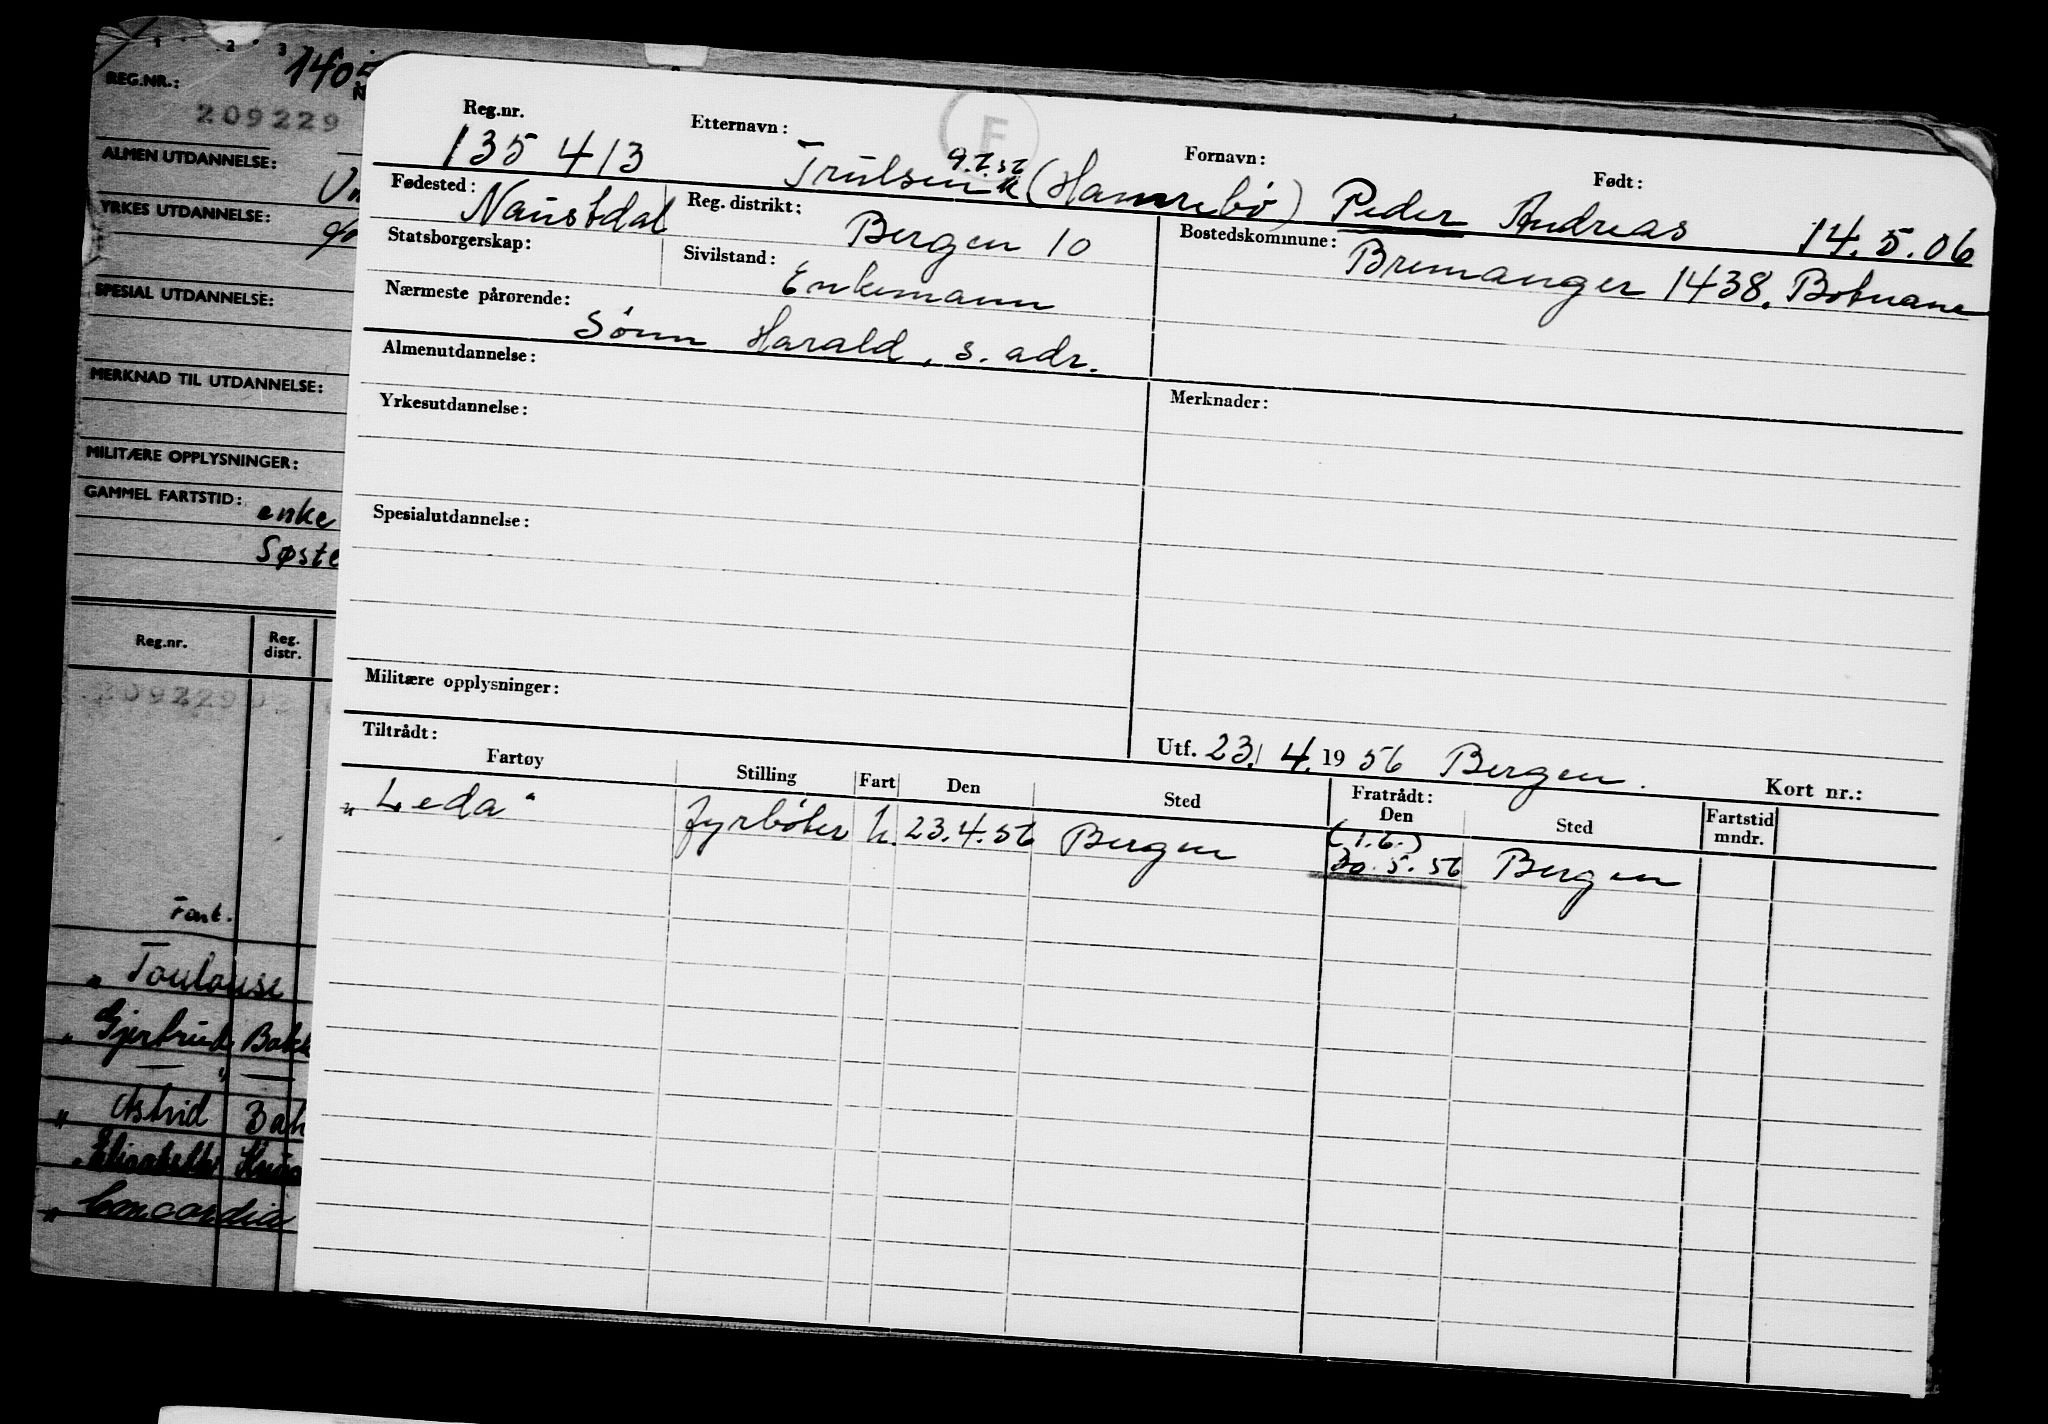 1 2 3
REG.NR.: 1405
209229
ALMEN UTDANNELSE:
YRKES UTDANNELSE:
SPESIAL UTDANNELSE:
MERKNAD TIL UTDANNELSE:
MILITÆRE OPPLYSNINGER:
GAMMEL FARTSTID: enke
Søste
Reg.nr. Reg. distr.
209229 02
Fart.
„ Toulouse
„ Gjertrud Bakk
— „ —
„ Astrid Bak
„ Elisabeth Knud
„ Concordia
F
Reg.nr. Etternavn: Fornavn: Født:
135 413 Trulsen (Hamrebö) Peder Andreas 14.5.06
Fødested: Naustdal Reg. distrikt: Bergen 10 Bostedskommune: Bremanger 1438. Botnane
Statsborgerskap: Sivilstand: Enkemann
Nærmeste pårørende: Sönn Harald, s. adr.
Almenutdannelse:
Yrkesutdannelse: Merknader:
Spesialutdannelse:
Militære opplysninger:
Tiltrådt: Utf. 23. 4. 19 56 Bergen. Kort nr.:
Fartøy Stilling Fart Den Sted Fratrådt: Den Sted Fartstid mndr.
(1.6.)
„Leda" fyrböter U. 23.4.56 Bergen 30.5.56 Bergen